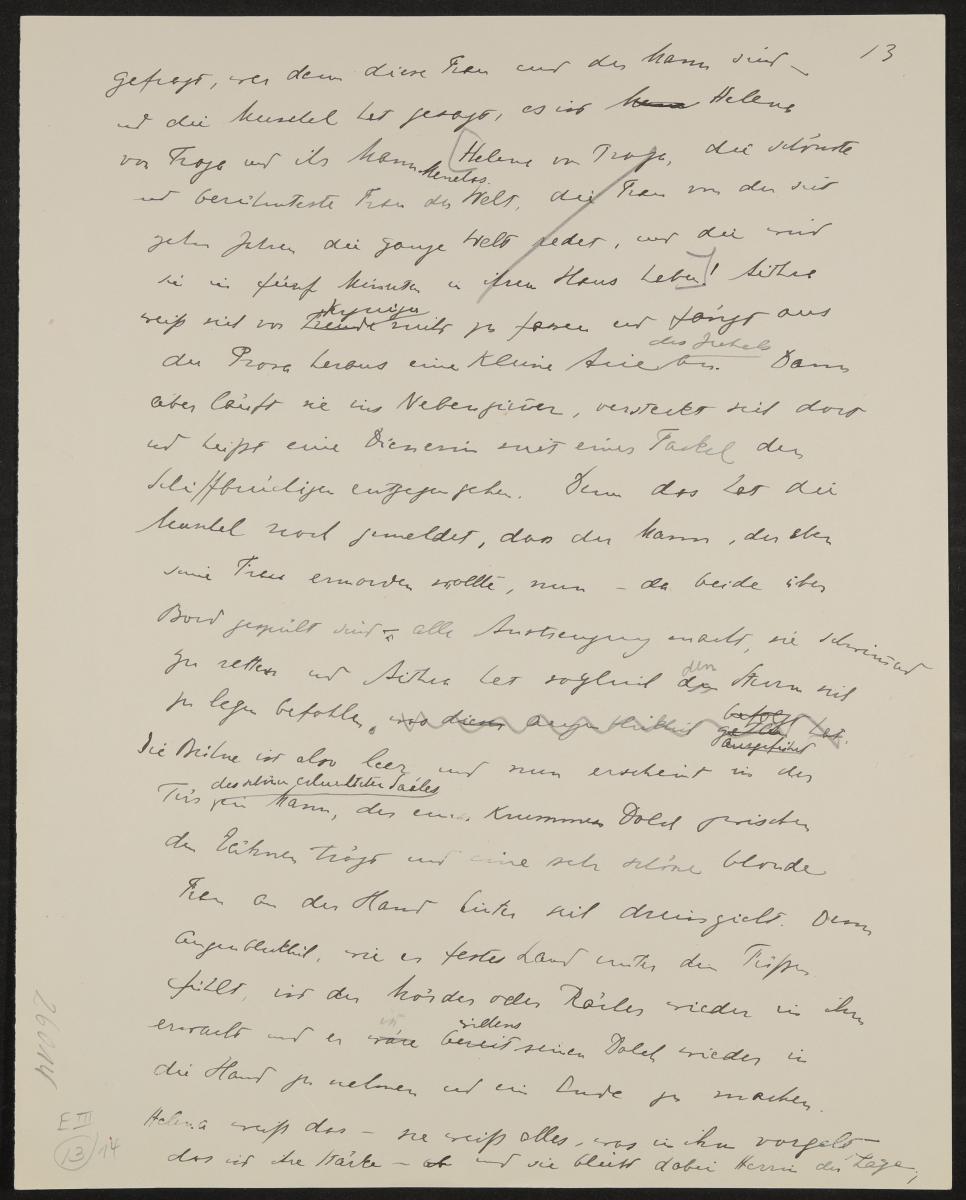 13
gefragt, wer denn diese Frau und der Mann sind –
und die Muschel hat gesagt, es ist Helena
von Troja und ihr Mann Menelas. [Helena von Troja, die schönste
und berühmteste Frau der Welt, die Frau von der seit
zehn Jahren die ganze Welt redet, und die wird
sie in fünf Minuten in ihrem Haus haben]! Aithra
weiß sich vor Freude nicht zu fassen und fängt aus
der Prosa heraus eine kleine Arie des Jubels an. Dann
aber läuft sie ins Nebenzimmer, versteckt sich dort
und heißt eine Dienerin mit einer Fackel den
Schiffbrüchigen entgegengehen. Denn das hat die
Muschel noch gemeldet, dass der Mann, der eben
seine Frau ermorden wollte, nun – da beide über
Bord gespült sind – alle Anstrengung macht, sie schwimmend
zu retten und Aithra hat sogleich dem Sturm sich
zu legen befohlen, was dieser augenblicklich befolgt hat.
ausgeführt
Die Bühne ist also leer und nun erscheint in der
Tür des schön geschmückten Saales ein Mann, der einen krummen Dolch zwischen
den Zähnen trägt und eine sehr schöne blonde
Frau an der Hand hinter sich dreinzieht. Denn
augenblicklich, wie er festes Land unter den Füßen
fühlt, ist der Mörder oder Rächer wieder in ihm
erwacht und er ist wäre willens bereit seinen Dolch wieder in
die Hand zu nehmen und ein Ende zu machen.
Helena weiß das – sie weiß alles, was in ihm vorgeht –
das ist ihre Stärke – und sie bleibt dabei Herrin der Lage,
26014
E III
13/14